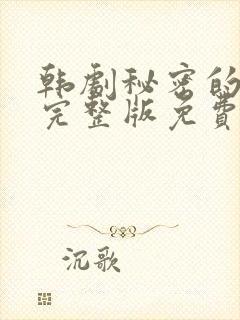 韩劇秘密的
完整版免費
沉歌